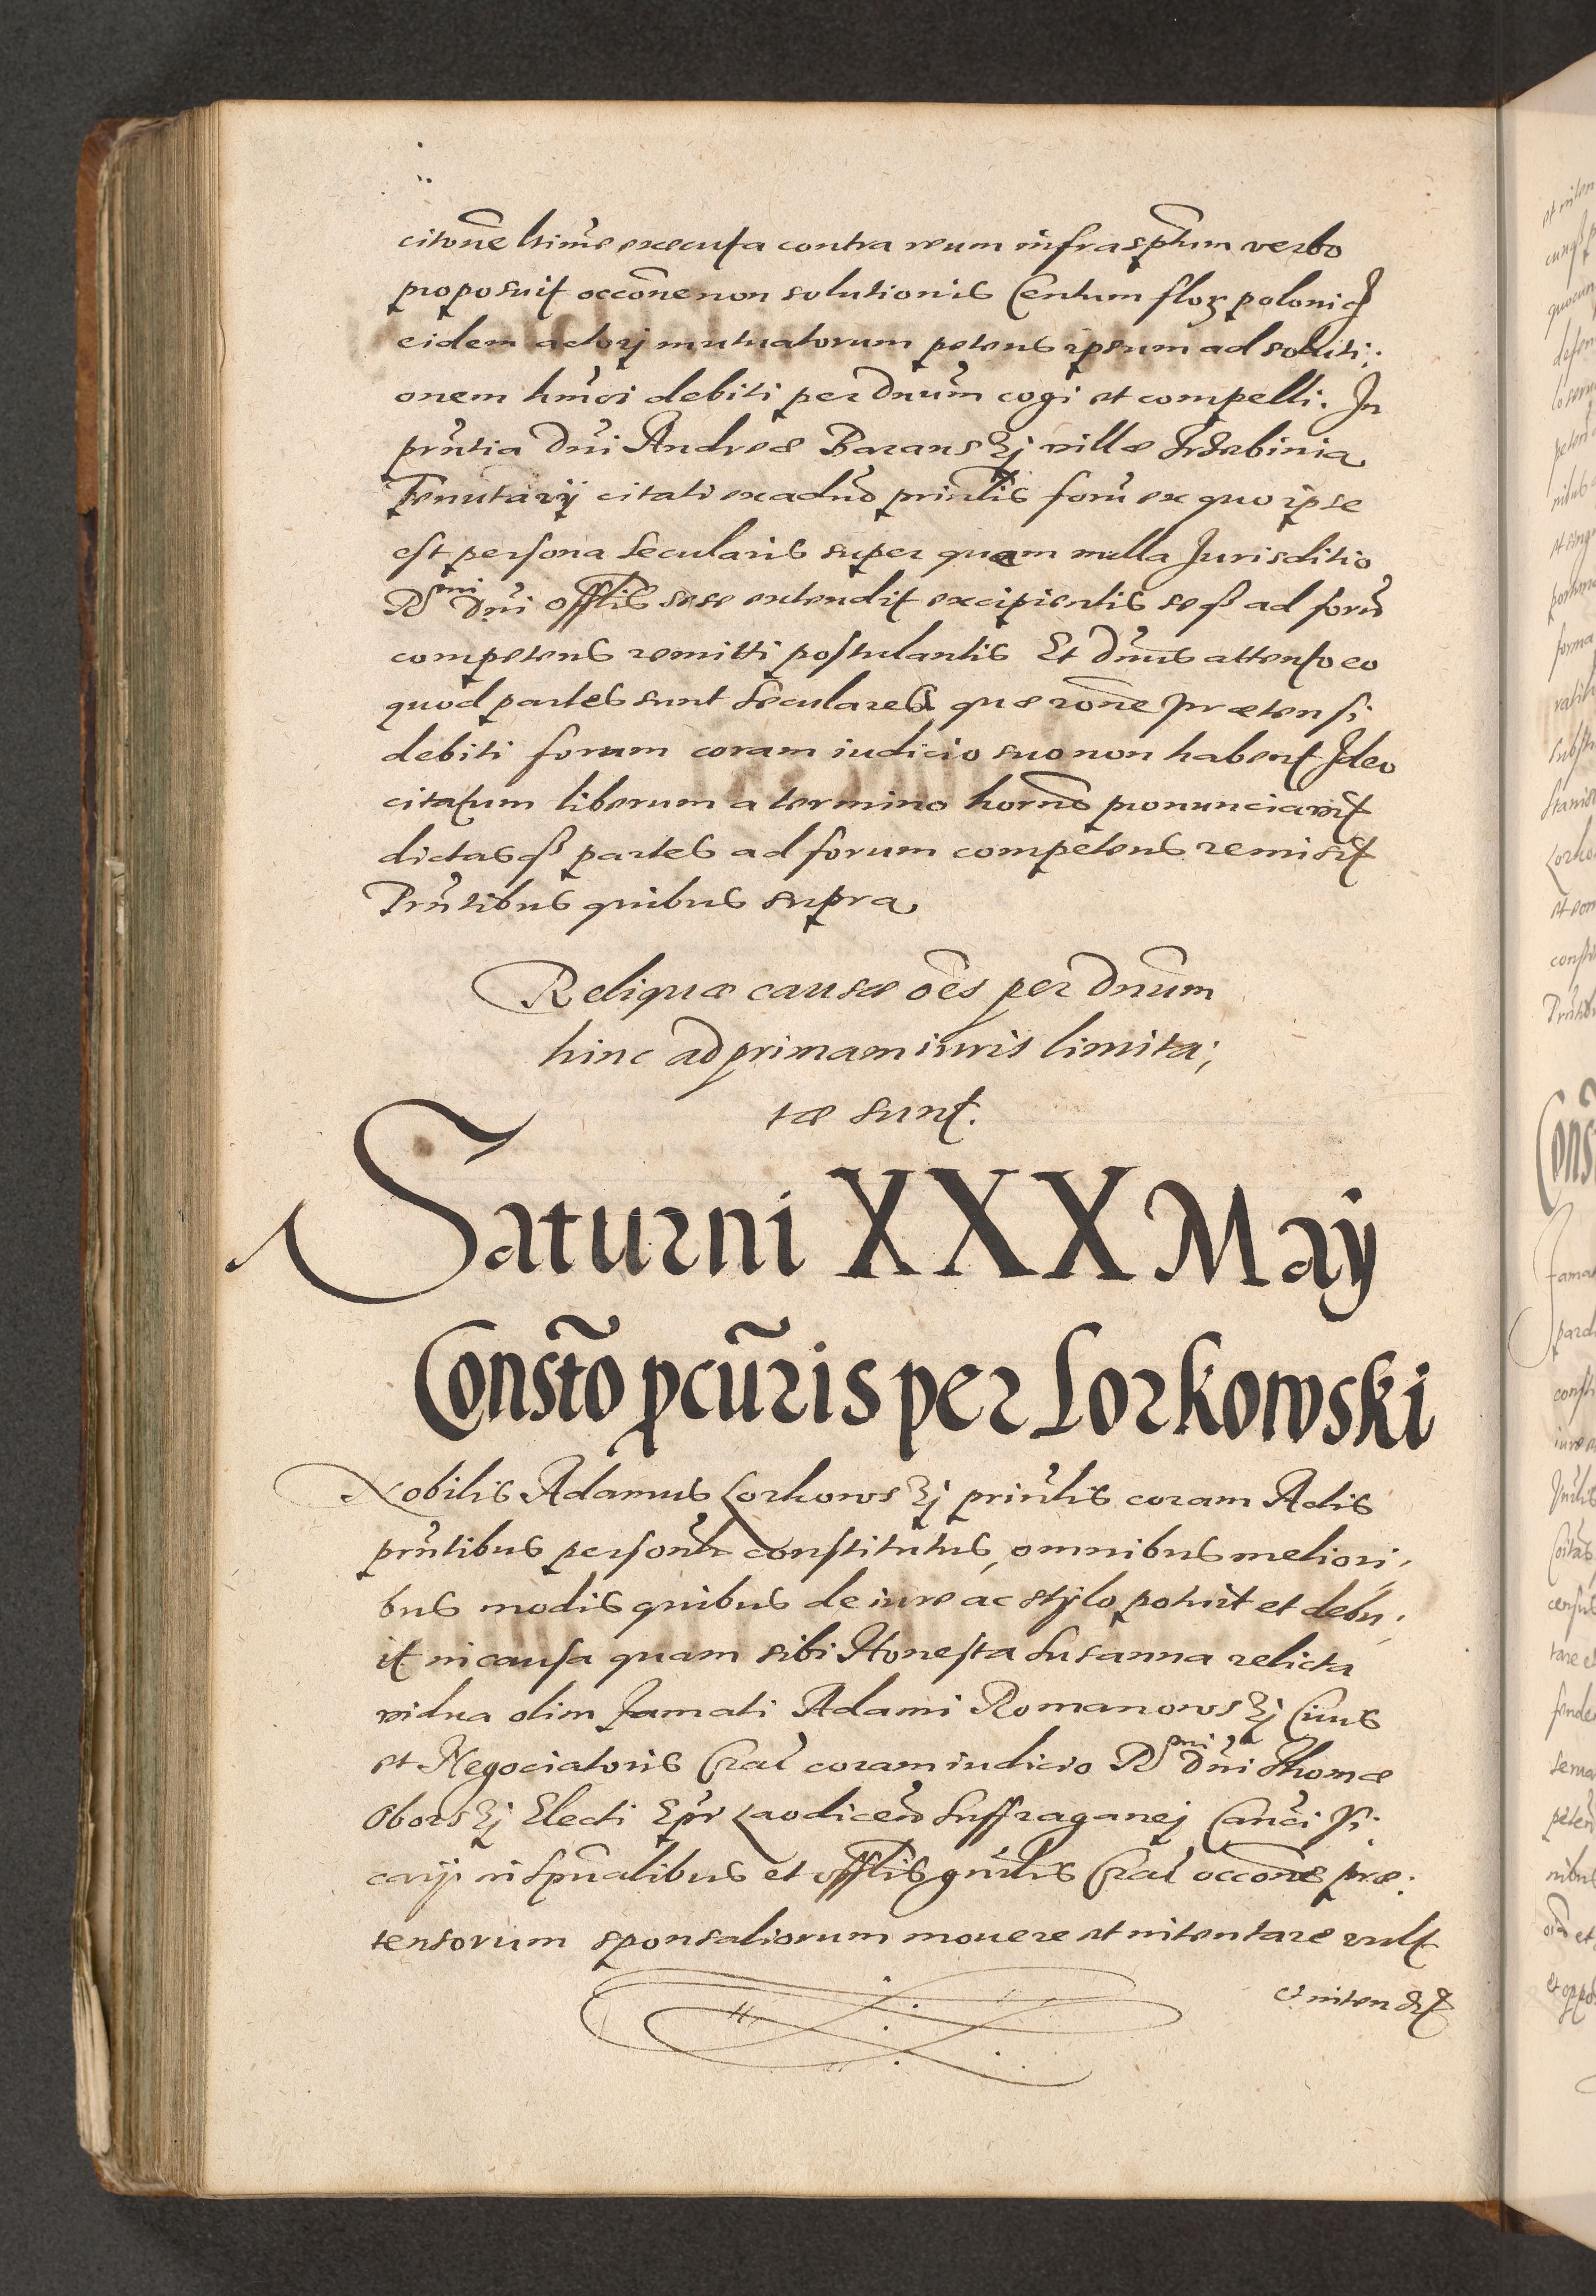 citoñe ltime executa contra reum infrasptum verbo
proposuit occone non solutionis Centum flor polonic
eidem actorj mutuatorum petens ipsum ad soluti:
onem hmoi debiti per Dnum cogi et compelli. In
prntia Dni Andreæ Baranskj villæ Trzebinia
Tenutarij citati ex aduo prinlis foru ex quo ipse
est persona secularis super quam nulla Jurisditio
Rdmi Dni offlis sese extendit excipientis seq ad foru
competens remitti postulantis Et Dnus attento eo
quod partes sunt seculares quæ rone prætensi
debiti forum coram iudicio suo non habent Ideo
citatum liberum a termino horno pronunciavit
dictasq partes ad forum competens remisit
Prntibus quibus supra
Reliquæ causæ oes per Dnum
hinc ad primam iuris limita;
tæ sunt.
Saturni XXX Maij
Consto pcuris per Lorkowski
Nobilis Adamus Lorkowskj prinlis coram Actis
prntibus personlr constitutus, omnibus meliori,
bus modis quibus de iure ac stylo potuit et debu,
it in causa quam sibi Honesta Susanna relicta
vidua olim Famati Adami Romanowskj Ciuis
et Negociatoris Cral coram iudicio Rdmi Dni Thomæ
Oborskj Electi Epi Laodiceñ Suffraganej Canci Vi:
carij in Spualibus et offlis gnlis Cral occone præ:
tensorum sponsaliorum mouere et intentare vult
et intendit